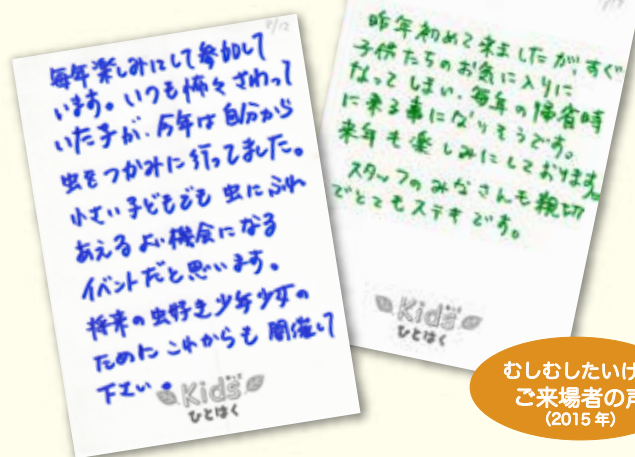 8/12
毎年楽しみにして参加して
います。いつも怖々さわって
いた子が、今年は自分から
虫をつかみに行ってました。
小さい子どもでも 虫にふれ
あえるよい機会になる
イベントだと思います。
将来の虫好き少年少女の
ために これからも 開催して
下さい。
Kids
ひとはく
昨年初めて来ましたが、すぐ
子供たちのお気に入りに
なってしまい、毎年の帰省時
に来る事になりそうです。
来年も楽しみにしております。
スタッフのみなさんも親切
でとてもステキです。
Kids
ひとはく
むしむしたいけ
ご来場者の声
(2015年)